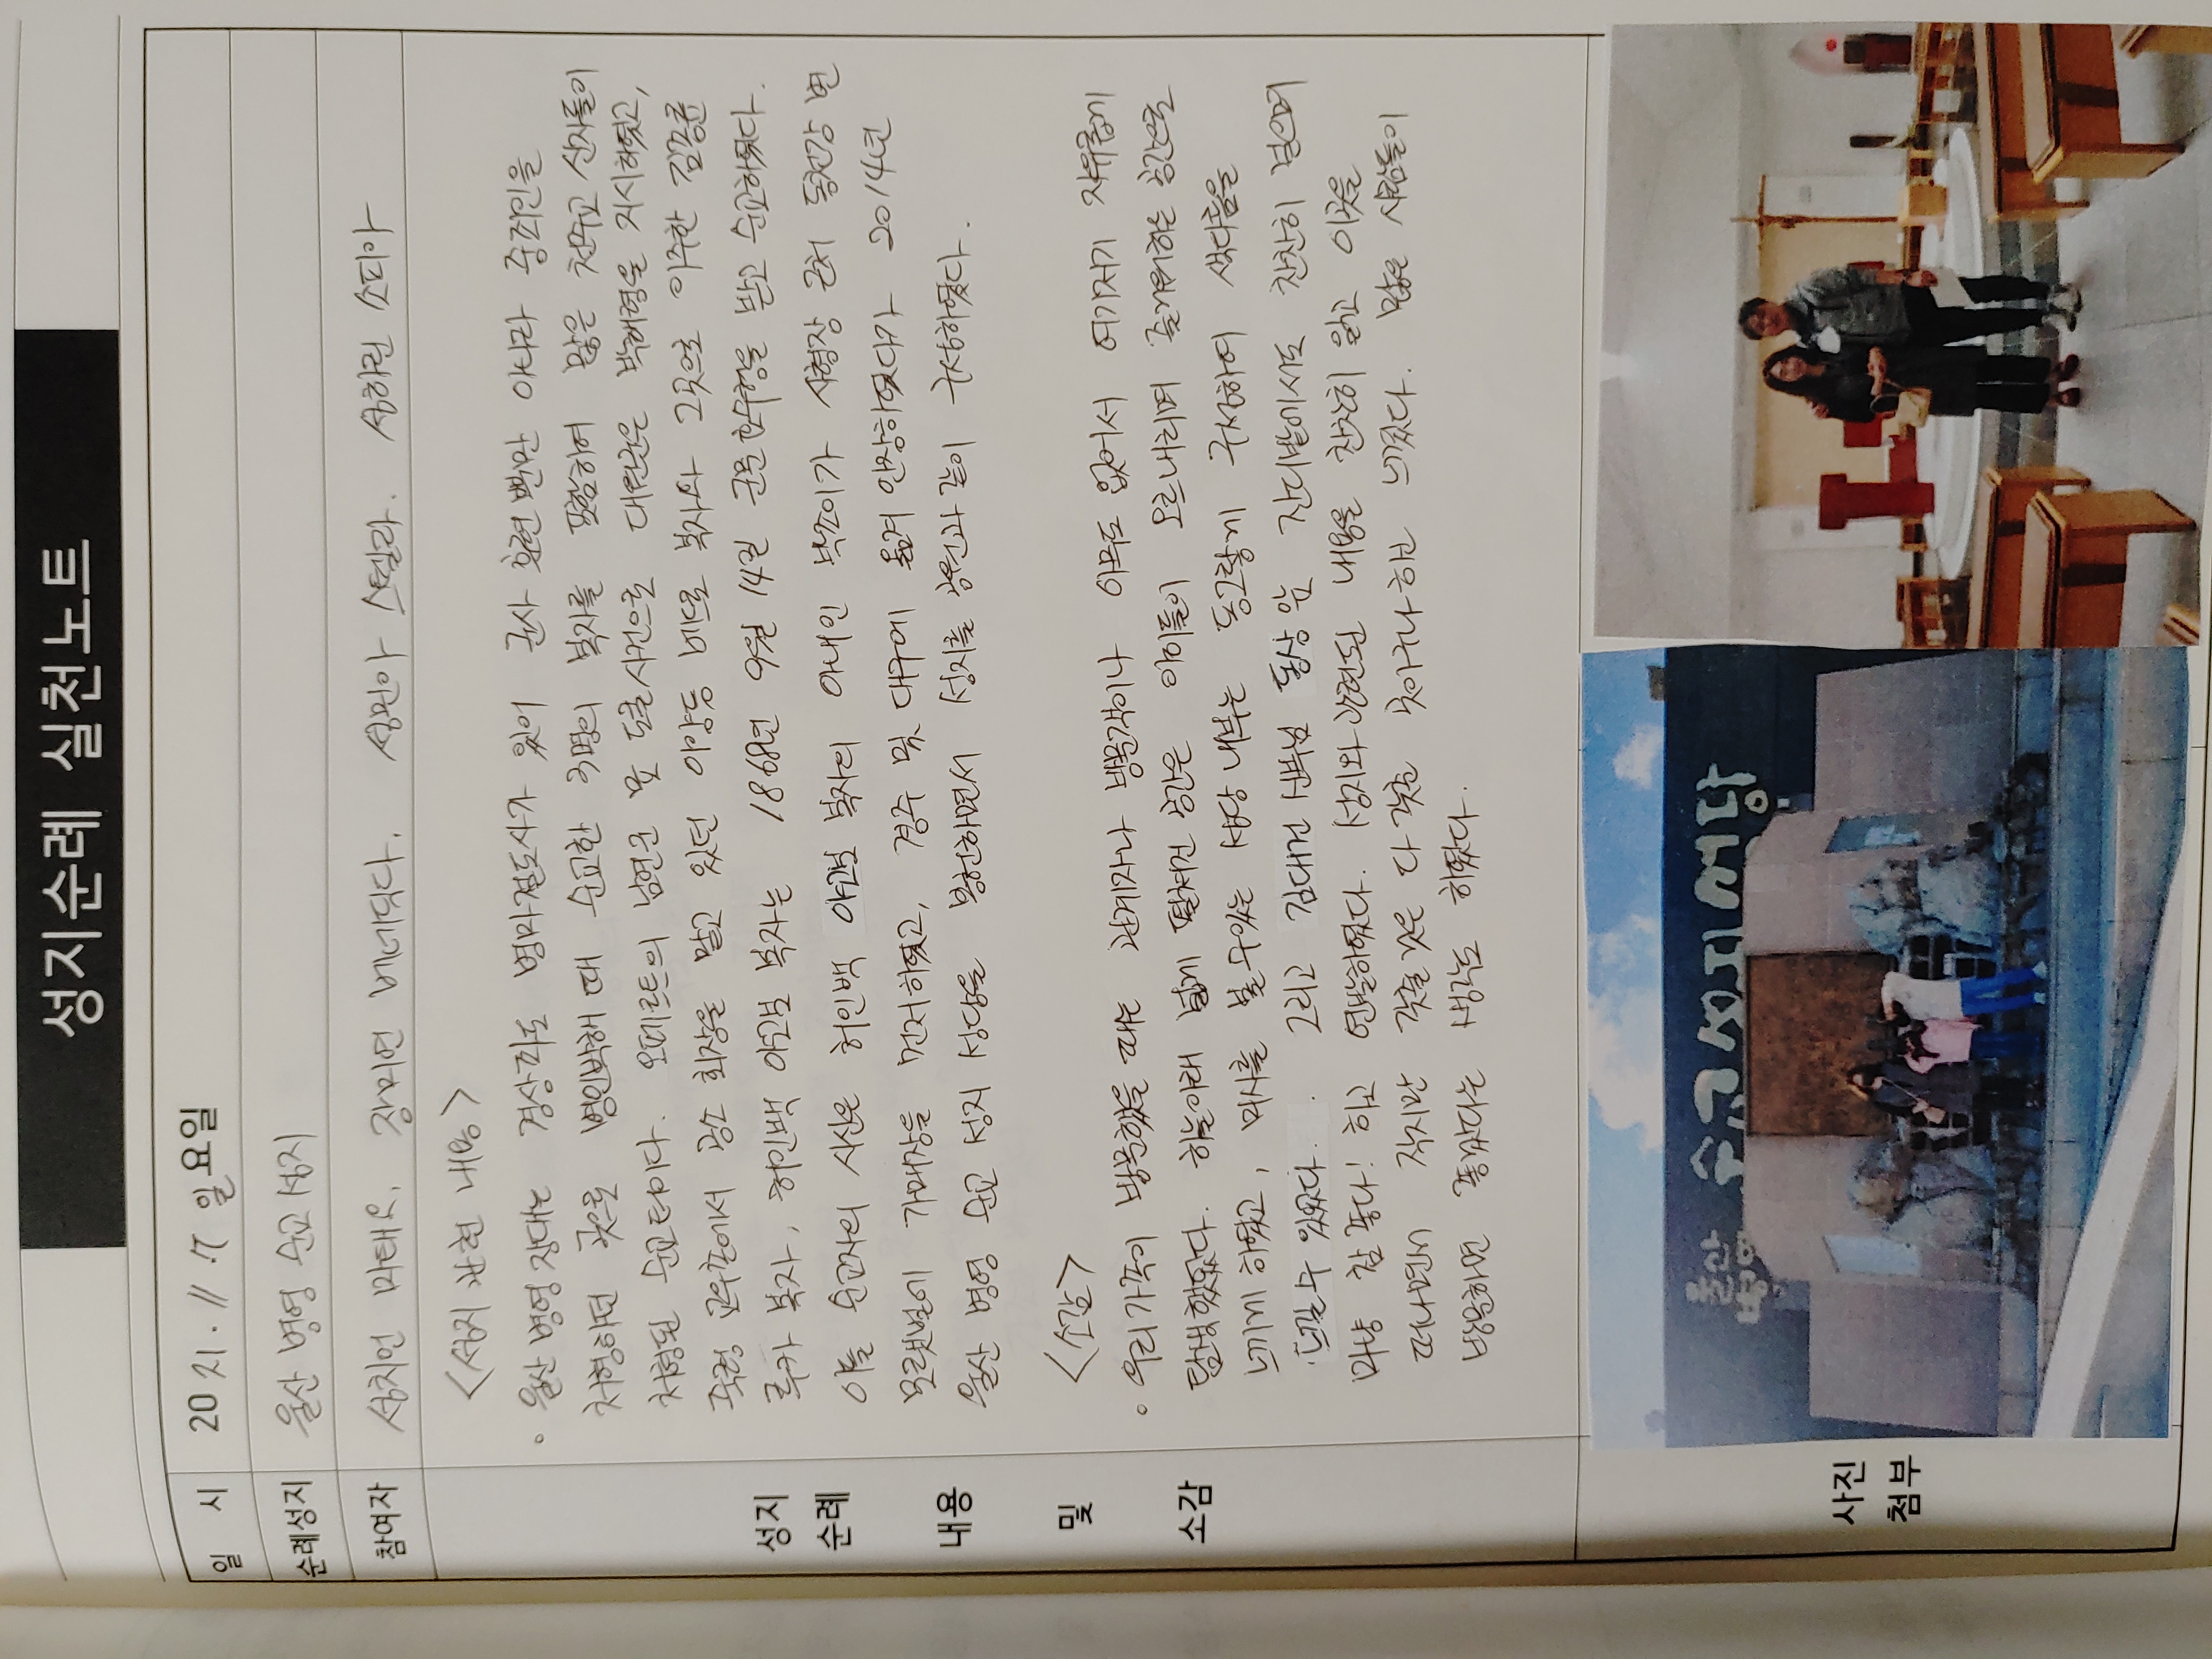 성지순례 실천노트
일 시 2021. 11. 7 일요일
순례성지 울산 병영 순교 성지
참여자 성치언 마태오, 장미연 베네딕다. 성민아 스텔라. 성하린 소피아
<성지 관련 내용>
◦ 울산 병영 장대는 경상좌도 병마절도사가 있어 군사 훈련 뿐만 아니라 중죄인을
처형하던 곳으로 병인박해 때 순교한 3명의 복자를 포함하여 많은 천주교 신자들이
처형된 순교터이다. 오페르트의 남연군 묘 도굴사건으로 대원군은 박해령을 지시하였고,
죽령 교우촌에서 공소 회장을 맡고 있던 이양등 베드로 복자와 그곳으로 이주한 김종륜
루카 복자, 허인백 야고보 복자는 1868년 9월 14일 군문효수형을 받고 순교하였다.
이들 순교자의 시신은 허인백 야고보 복자의 아내인 박조이가 사형장 근처 동천강 변
모랫벌에 가매장을 먼저하였고, 경주 및 대구에 옮겨 안장하였다가 2014년
울산 병영 순교 성지 성당을 봉헌하면서 성지를 공원과 같이 구성하였다.
성지
순례
내용
및
소감
<소감>
◦ 우리가족이 방문했을 때는 관계자나 방문객이나 아무도 없어서 여기저기 자유롭게
탐색했었다. 하늘아래 넓게 펼쳐진 공간은 아이들이 오르내리며 즐거워하는 공간으로
느끼게 하였고, 미사를 볼 수 있는 성당 내부는 동그랗게 구성하여 색다름을
느낄 수 있었다. 그리고 김대건 신부님 동상 앞 잔디밭에서도 찬찬히 걸으며
마냥 참 좋다! 하고 연발하였다. 성지와 관련된 내용을 찬찬히 읽고 이곳을
떠나면서 작지만 갖출 것은 다 갖춘 곳이구나 하고 느꼈다. 많은 사람들이
방문하면 좋겠다는 생각도 하였다.
사진
첨부
울산
병영 순교성지성당